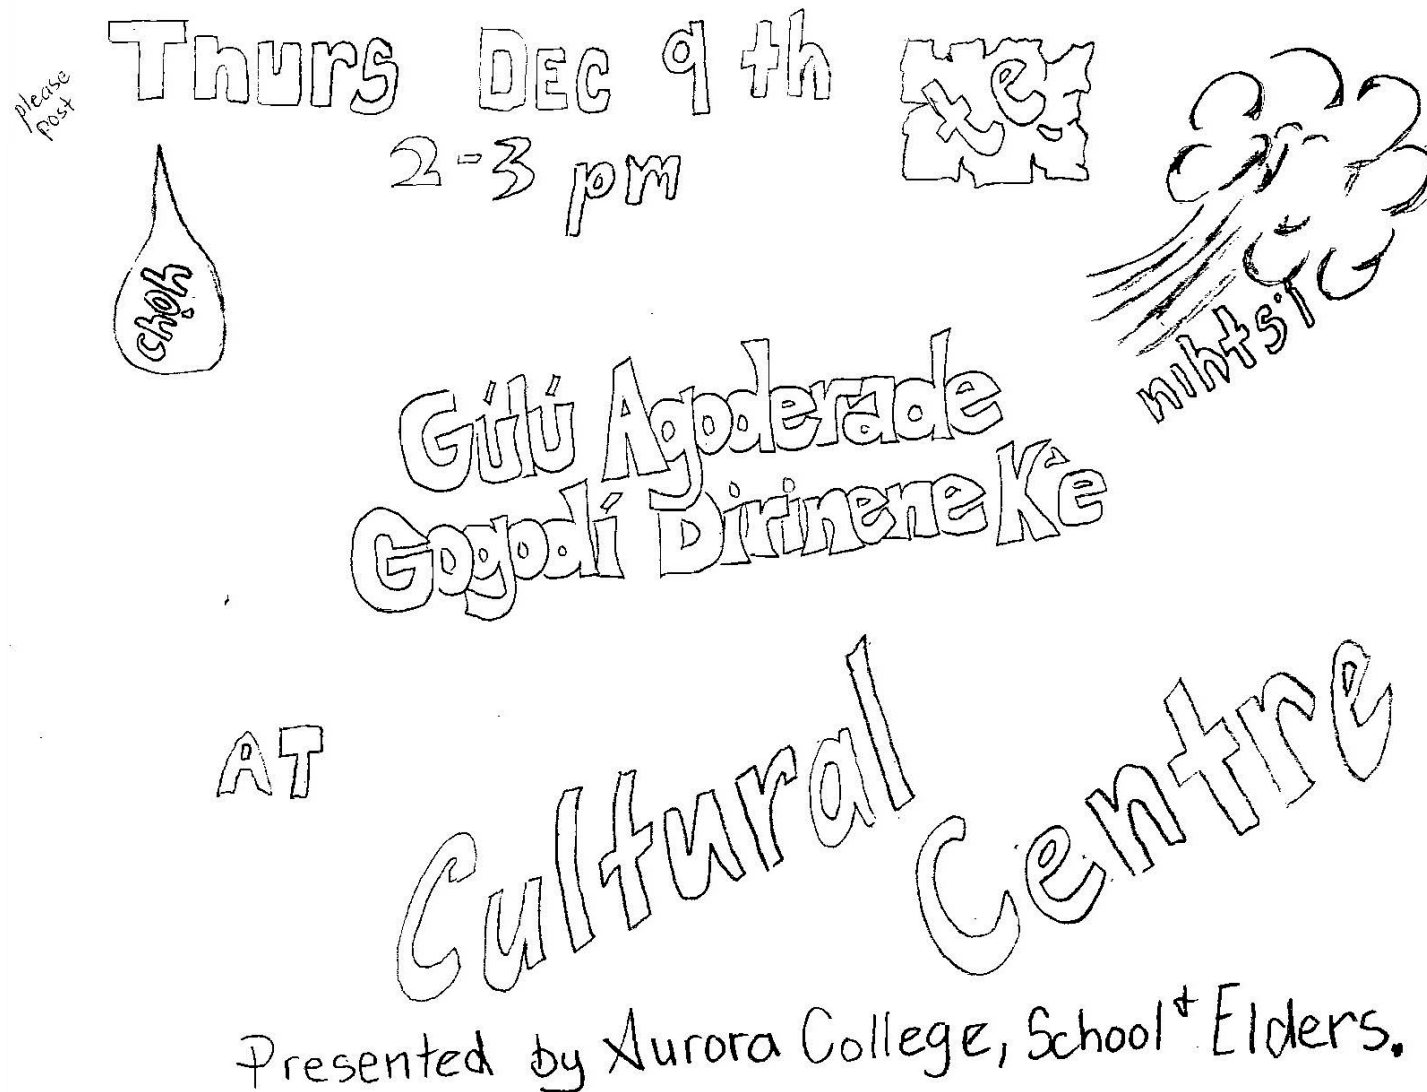 please
post
Thurs DEC 9th
2-3 pm
te
chǫh
nıhts'ı
Gúlú Agoderade
Gogodí Dirinene K'e
AT
Cultural Centre
Presented by Aurora College, School & Elders.